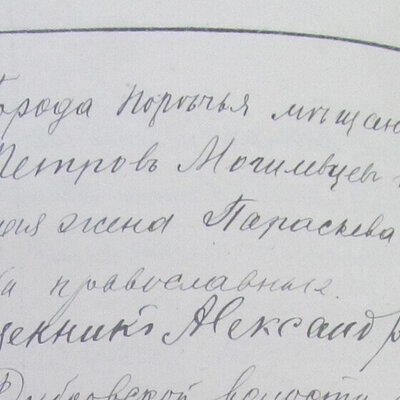 города Порѣчья мѣщан
Петровъ Могилевцевъ
жена Параскева
православные.
щенникъ Александр
Дубровской волости